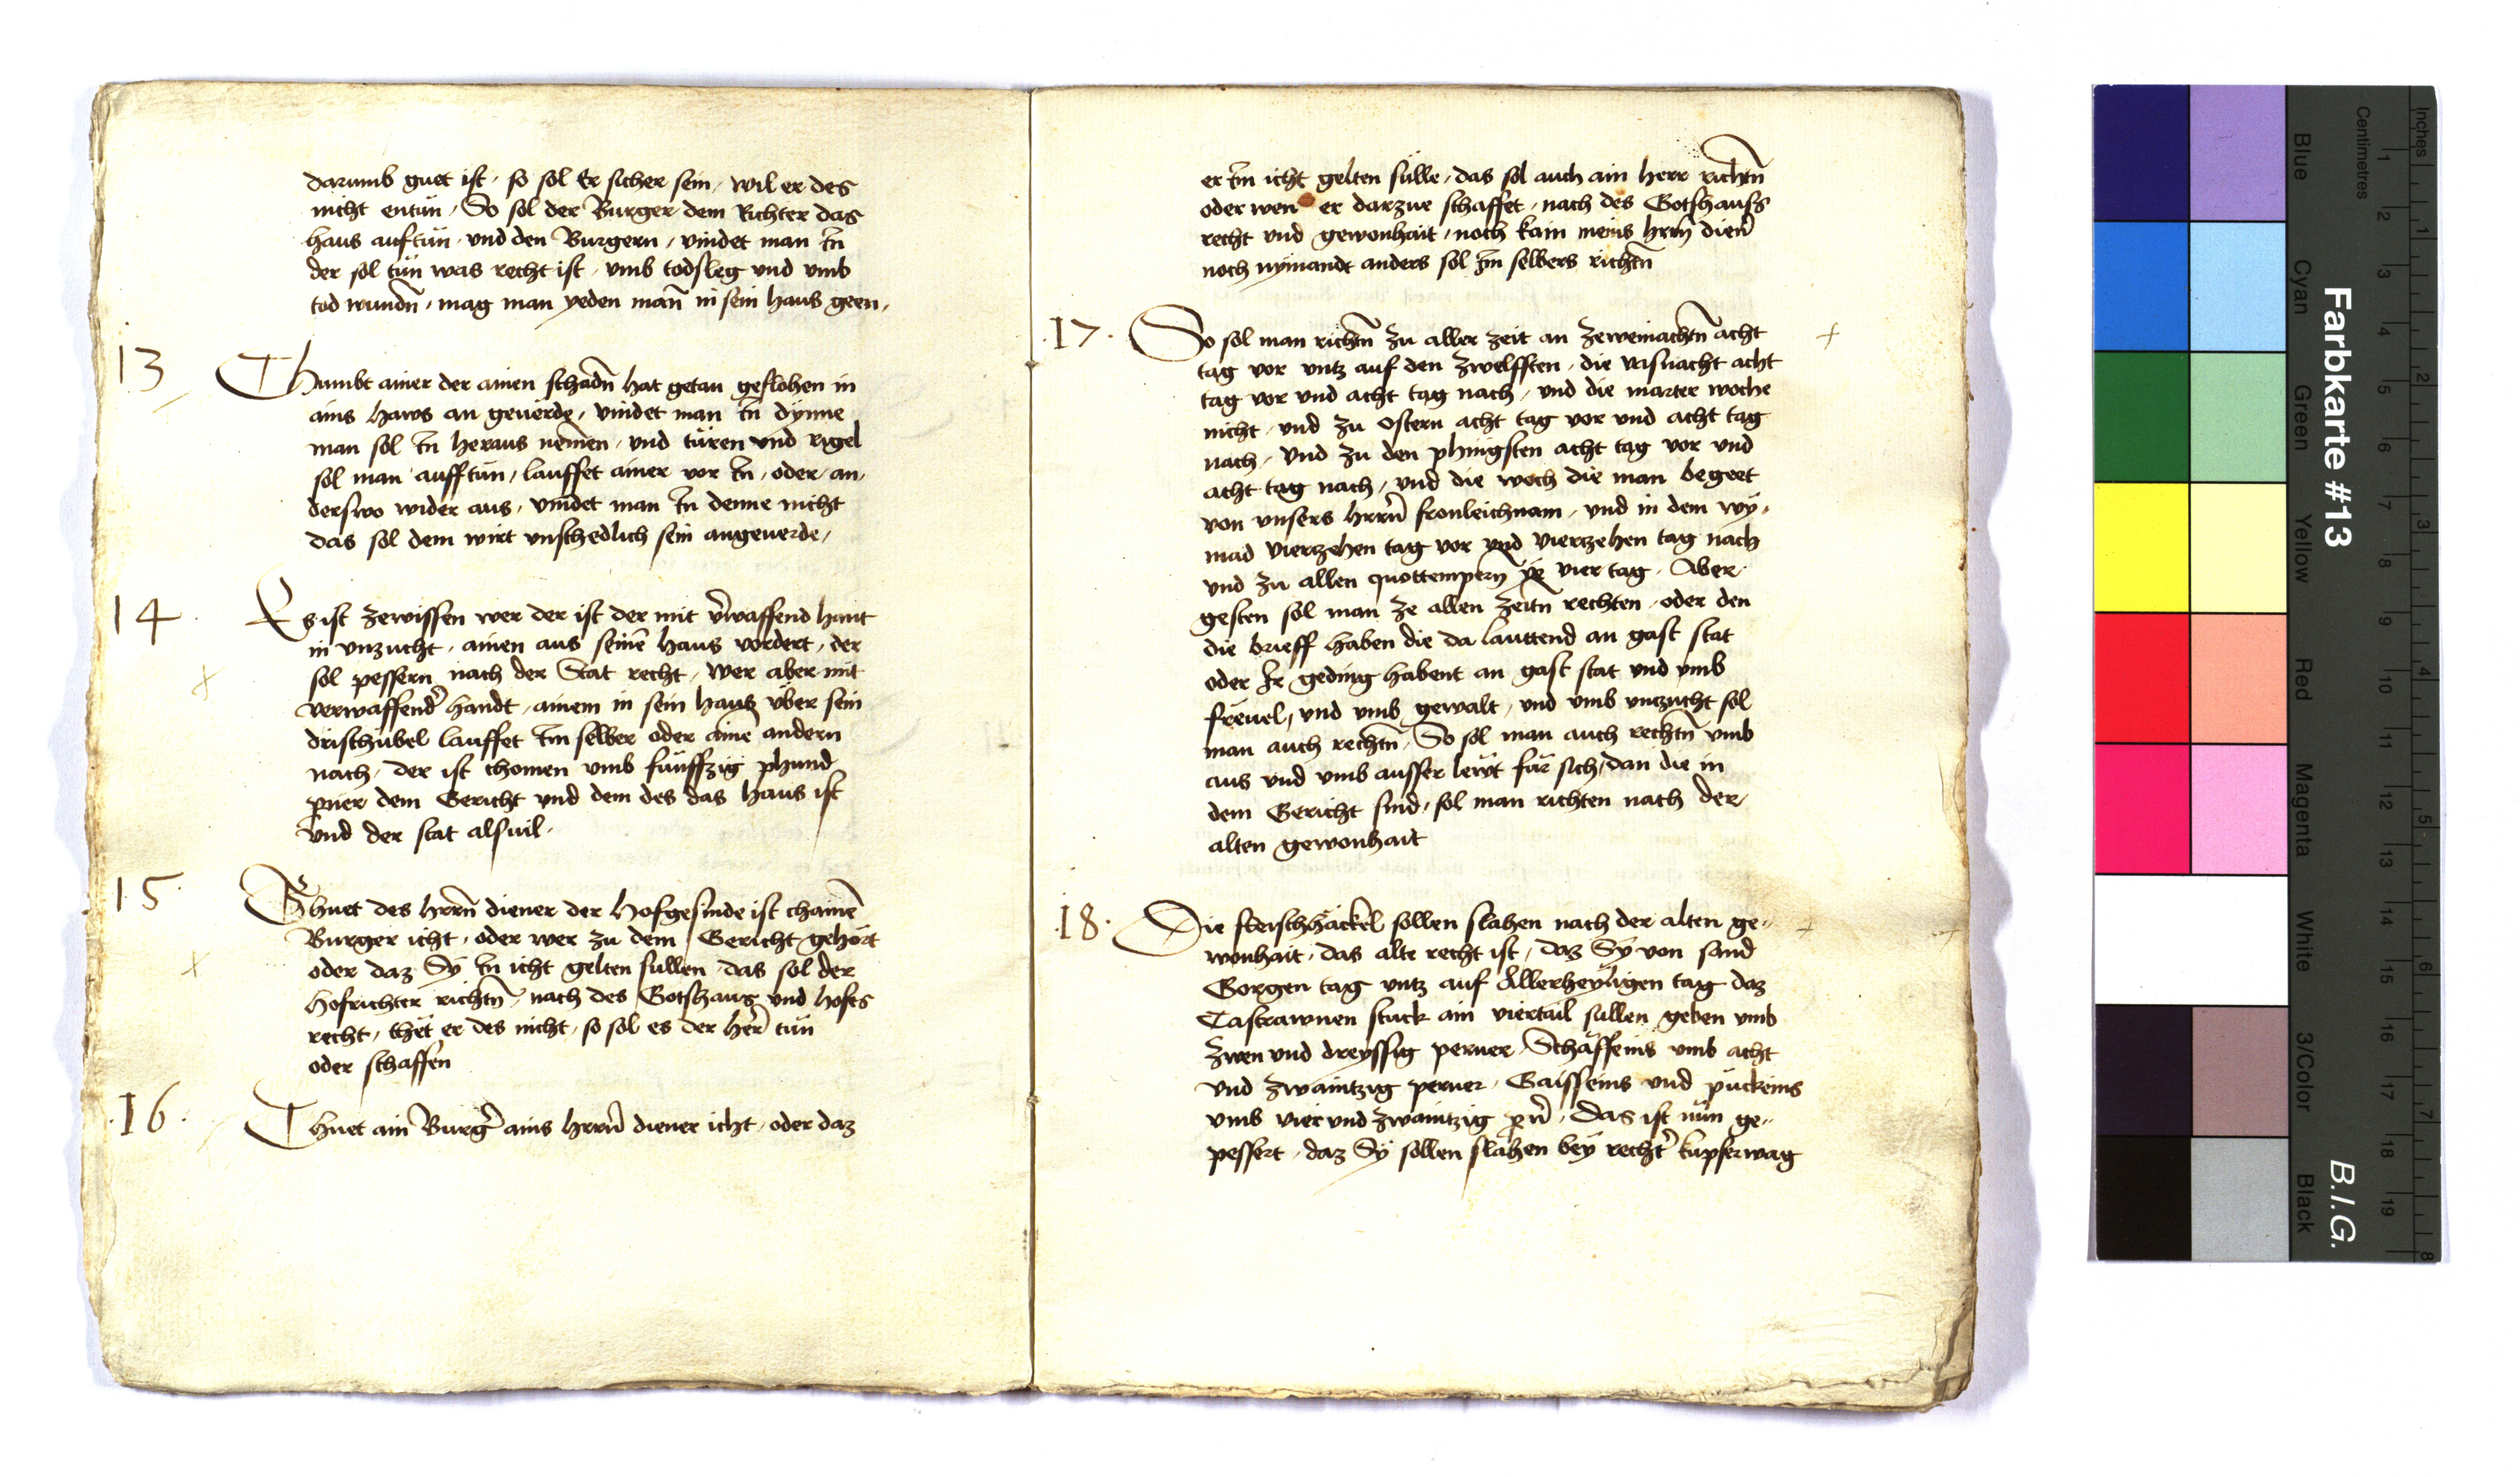 darumb guet ist, so sol Er sicher sein, wil er des
nicht entün, So sol der Burger dem Richter das
haus auftün, vnd den Burgern, vindet man In
der sol tün was recht ist, vmb todsleg vnd vmb
tod wundn̄, mag man yeden man̄ in sein haus geen,
13
Chumbt ainer der ainen schadn̄ hat getan geflohen in
ains haws an geuerde, vindet man In dynne
man sol In heraus nemen, vnd türen vnd rigel
sol man aufftün, lauffet ainer vor In, oder an,
derswo wider aus, vindet man In denne nicht
das sol dem wirt vnschedlich sein angeuerde,
14
Es ist zewissen wer der ist der mit v̄waffend hant
in vnzucht, ainen aus seinē haus vordert, der
sol pessern nach der Stat recht, wer aber mit
verwaffend̄ handt, ainem in sein haus vber sein
drischübel lauffet Im selber oder ainē andern
nach, der ist chomen vmb fünffzig phund
p̄ner dem Gericht vnd dem des das haus ist
vnd der stat alsuil.
15
Thuet des hrrn̄ diener der Hofgesinde ist chainē
Burger icht, oder wer zu dem Gericht gehört
oder daz Sy In icht gelten sullen, das sol der
Hofrichter richtn̄, nach des Gotshaus vnd hofes
recht, thet er des nicht, so sol es der her̄ tün
oder schaffen
16.
Thuet ain Burḡ ains hrrn̄ diener icht, oder daz
er Im icht gelten sülle, das sol auch ain herr richtn̄
oder wen er darzue schaffet, nach des Gotshauss
recht vnd gewonhait, noch kain meins hrrn̄ dien̄
noch nymandt anders sol Im selbers richtn̄
17.
So sol man richtn̄ zu aller zeit an zeweinachtn̄ acht
tag vor vntz auf den zwelfften, die vasnacht acht
tag vor vnd acht tag nach, vnd die marter woche
nicht, vnd zu Ostern acht tag vor vnd acht tag
nach, vnd zu den phingsten acht tag vor vnd
acht tag nach, vnd die woch die man begeet
von vnsers hrrn̄ fronleichnam, vnd in dem wy,
mad vierzehen tag vor vnd vierzehen tag nach
vnd zu allen quottempern ye vier tag. Aber
gesten sol man ze allen zeitn̄ rechten, oder den
die brieff haben die da lauttend an gast stat
oder Ir geding habent an gast stat vnd vmb
freuel, vnd vmb gewalt, vnd vmb vnzucht sol
man auch rechtn̄, So sol man auch rechtn̄ vmb
aus vnd vmb ausser lewt für sich, dan die in
dem Gericht sind, sol man richten nach der
alten gewonhait
18.
Die fleischhäckel sollen slahen nach der alten ge,,
wonhait, das alte recht ist, daz Sy von sand
Gorgen tag vntz auf Allerheyligen tag daz
Castrawnen stuck ain viertail sullen geben vmb
zwen vnd dreyssig perner, Schäffeins vmb acht
vnd zwaintzig perner, Gaisseins vnd pückeins
vmb vier vnd zwaintzig p̄n̄, Das ist nün ge,,
pessert, daz Sy sollen slahen bey recht̄ kupferwag
Farbkarte #13
B.I.G.
Blue
Cyan
Green
Yellow
Red
Magenta
White
3/Color
Black
Centimetres
Inches
1 2 3 4 5 6 7 8 9 10 11 12 13 14 15 16 17 18 19
1 2 3 4 5 6 7 8